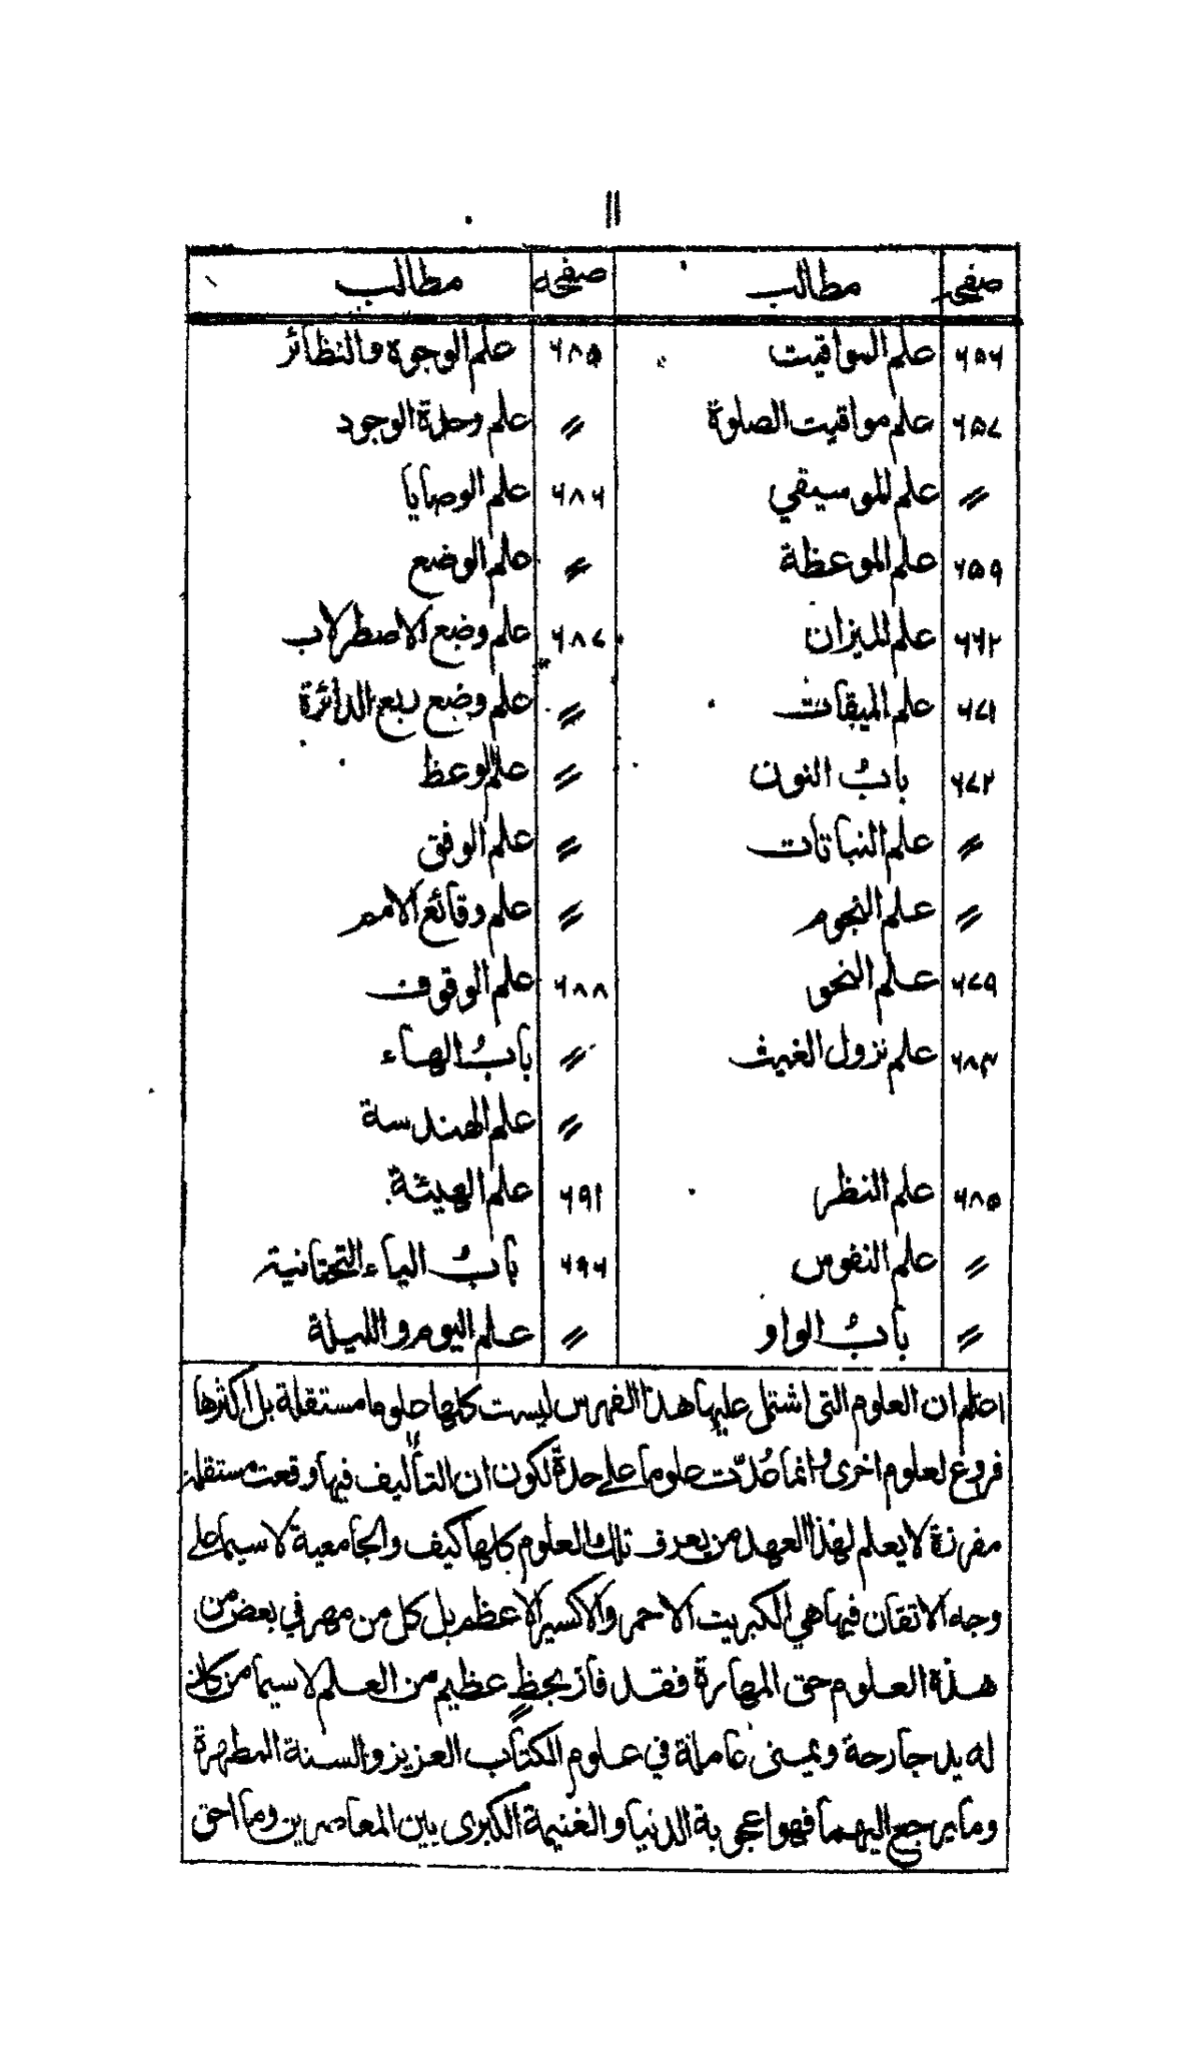 ۱۱
صفحه مطالب صفحه مطالب
۶۵۶ علم المواقيت ۶۸۵ علم الوجوه والنظائر
۶۵۷ علم مواقيت الصلوة 〃 علم وحدة الوجود
〃 علم الموسيقي ۶۸۶ علم الوصايا
۶۵۹ علم الموعظة 〃 علم الوضع
۶۶۲ علم الميزان ۶۸۷ علم وضع الاصطرلاب
۶۷۱ علم الميقات 〃 علم وضع ربع الدائرة
۶۷۲ بابُ النون 〃 علم الوعظ
〃 علم النباتات 〃 علم الوفق
〃 علم النجوم 〃 علم وقائع الامم
۶۷۹ علم النحو ۶۸۸ علم الوقوف
۶۸۳ علم نزول الغيث 〃 بابُ الهاء
〃 علم الهندسة
۶۸۵ علم النظر ۶۹۱ علم الهيئة
〃 علم النفوس ۶۹۶ بابُ الياء التحتانية
〃 بابُ الواو 〃 علم اليوم والليلة
اعلم ان العلوم التى اشتمل عليها هذا الفهرس ليست كلها علوما مستقلة بل اكثرها
فروع لعلوم اخرى وانما عُدّت علوما على حدة لكون ان التأليف فيها وقعت مستقلة
مفرزة لا يعلم لهذا العهد من يعرف تلك العلوم كلها كيف والجامعية لا سيما على
وجه الاتقان فيها هي الكبريت الاحمر والاكسير الاعظم بل كل من مهر في بعض من
هذه العلوم حق المهارة فقد فاز بحظٍ عظيم من العلم لاسيما من كانت
له يد جارحة ويمنى عاملة في علوم الكتاب العزيز والسنة المطهرة
وما يرجع اليهما فهو اعجوبة الدنيا والغنيمة الكبرى بين المعاصرين وما احق